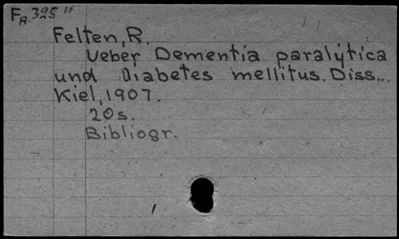 FA 395 VI
Felten, R.
Ueber Dementia paralytica
und Diabetes mellitus. Diss...
Kiel, 1907.
20s.
Bibliogr.
1